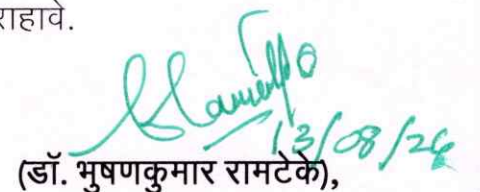 राहावे.
13/08/26
(डॉ. भुषणकुमार रामटेके),